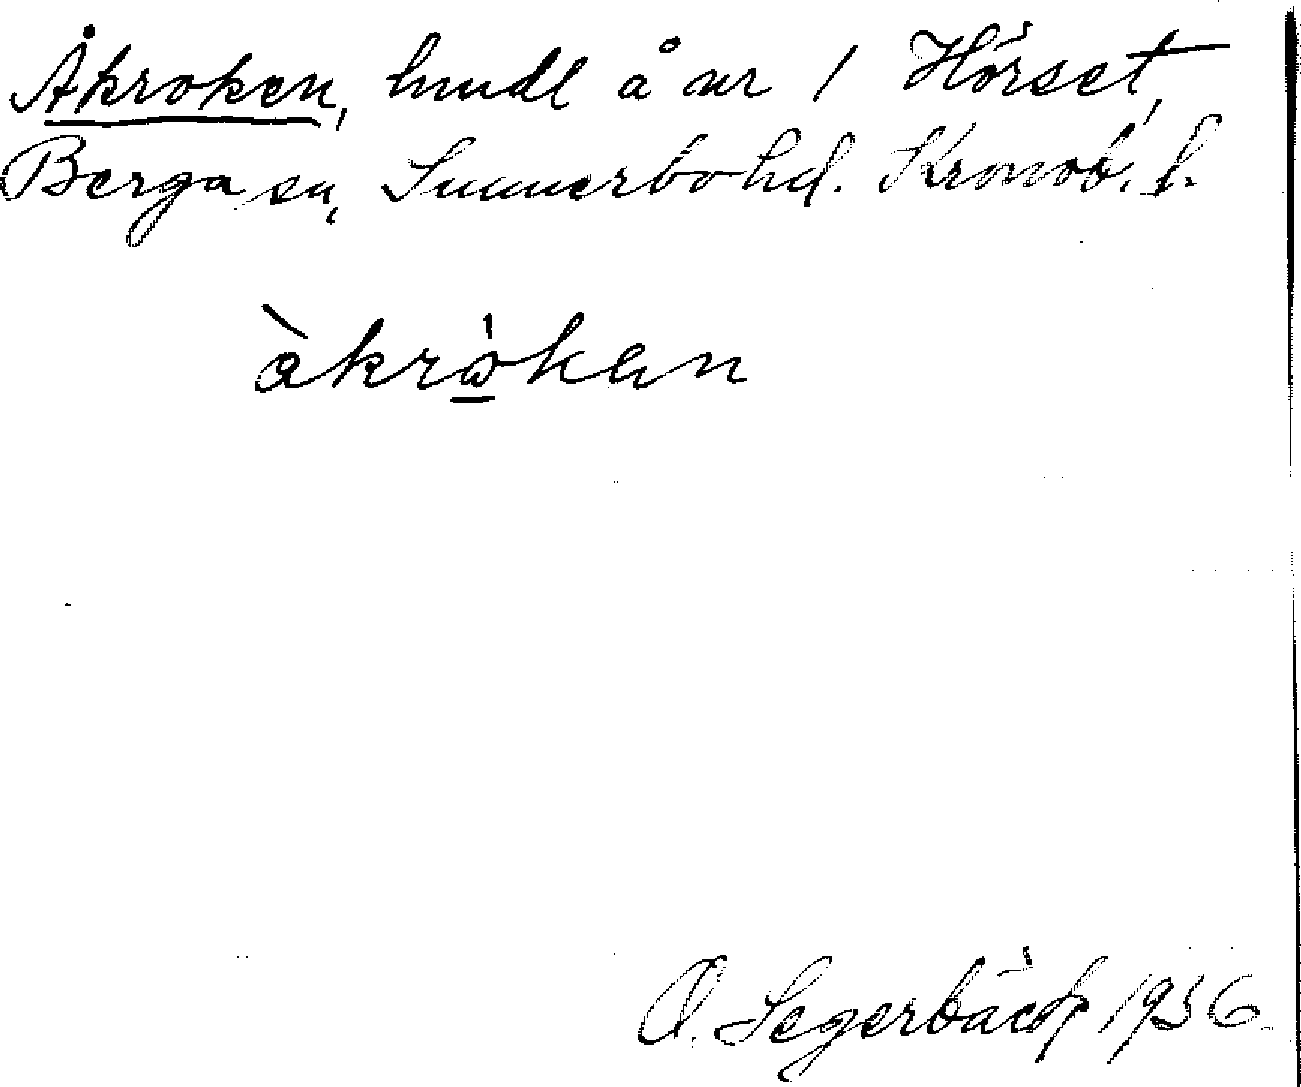 Åkroken, hmdl å nr 1 Hörset,
Berga sn, Sunnerbo hd. Kronob. l.
åkrokan
O. Segerbäck 1936